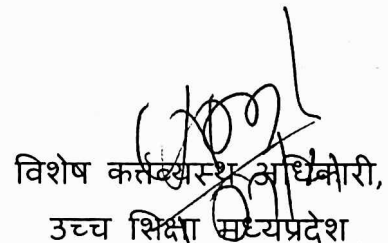 विशेष कर्त्तव्यस्थ अधिकारी,
उच्च शिक्षा मध्यप्रदेश